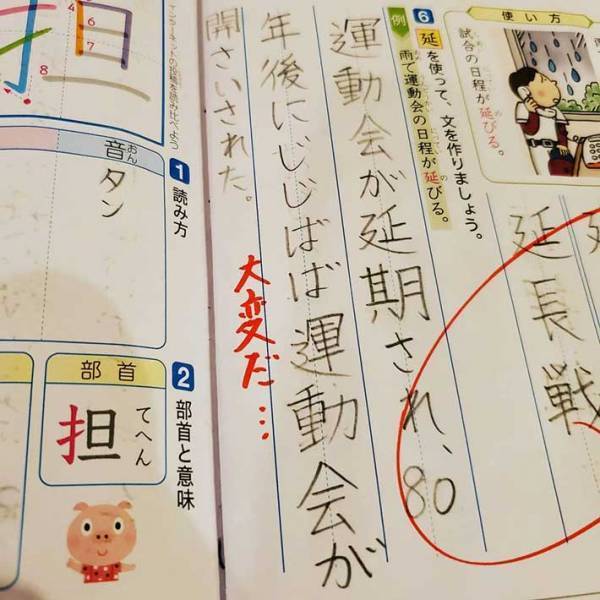 使い方
試合の日程が延びる。
6 延を使って、文を作りましょう。
例 雨で運動会の日程が延びる。
延長戦
運動会が延期され、80
年後にじじばば運動会が
開さいされた。
大変だ…
1 読み方
音 おん
タン
2 部首と意味
部首
担 てへん
担
4
6
7
8